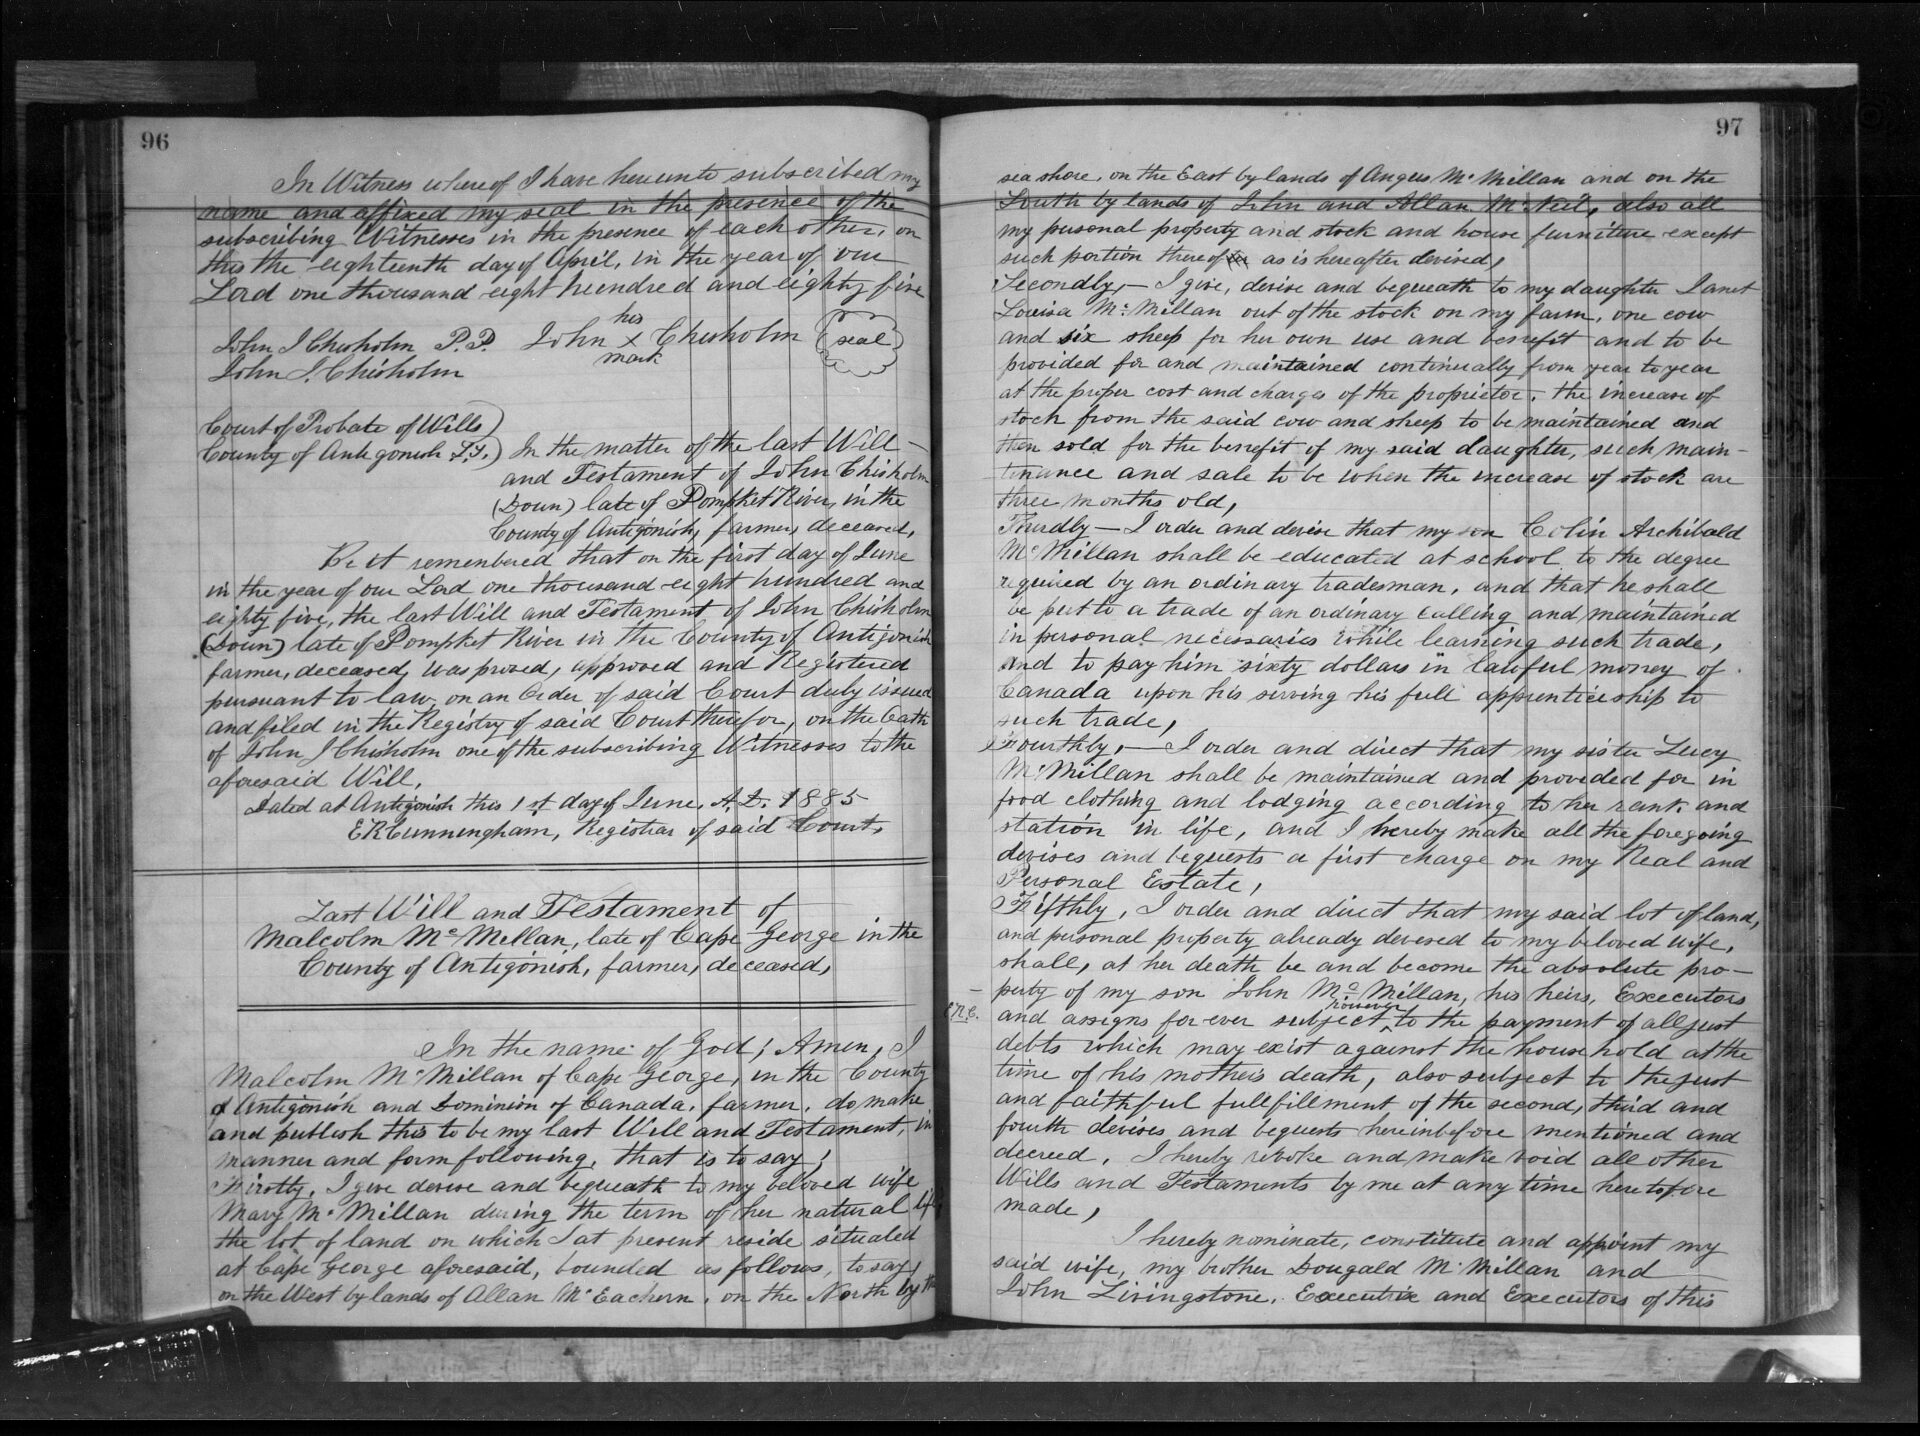 96
In Witness whereof I have hereunto subscribed my
name and affixed my seal in the presence of the
subscribing Witnesses in the presence of each other, on
this the eighteenth day of April, in the year of our
Lord one thousand eight hundred and eighty five
his
John J Chisholm P.P. John X Chisholm (seal)
mark
John J. Chisholm
Court of Probate of Wills)
County of Antigonish S.S.) In the matter of the last Will
and Testament of John Chisholm
(Doun) late of Pompket River, in the
County of Antigonish, farmer, deceased,
Be it remembered that on the first day of June
in the year of our Lord one thousand eight hundred and
eighty five, the last Will and Testament of John Chisholm
(Doun) late of Pompket River in the County of Antigonish
farmer, deceased, was proved, approved and Registered
pursuant to law, on an Order of said Court duly issued
and filed in the Registry of said Court therefor, on the Oath
of John J Chisholm one of the subscribing Witnesses to the
aforesaid Will.
Dated at Antigonish this 1st day of June, A.D. 1885
E R Cunningham, Registrar of said Court,
Last Will and Testament of
Malcolm Mc Mellan, late of Cape George in the
County of Antigonish, farmer, deceased,
In the name of God; Amen, I
Malcolm McMillan of Cape George, in the County
of Antigonish and Dominion of Canada, farmer, do make
and publish this to be my last Will and Testament, in
manner and form following, that is to say;
Firstly, I give devise and bequeath to my beloved wife
Mary McMillan during the term of her natural life
the lot of land on which I at present reside situated
at Cape George aforesaid, bounded as follows, to say,
on the West by lands of Allan McEachern, on the North by the
97
sea shore, on the East by lands of Angus McMillan and on the
South by lands of John and Allan McNeil, also all
my personal property and stock and house furniture except
such portion thereof as is hereafter devised,
Secondly, — I give, devise and bequeath to my daughter Janet
Louisa McMillan out of the stock on my farm, one cow
and six sheep for her own use and benefit and to be
provided for and maintained continually from year to year
at the proper cost and charges of the proprietor, the increase of
stock from the said cow and sheep to be maintained and
then sold for the benefit of my said daughter, such main-
tenance and sale to be when the increase of stock are
three months old,
Thirdly — I order and devise that my son Colin Archibald
McMillan shall be educated at school to the degree
required by an ordinary tradesman, and that he shall
be put to a trade of an ordinary calling and maintained
in personal necessaries while learning such trade,
and to pay him sixty dollars in lawful money of
Canada upon his serving his full apprenticeship to
such trade,
Fourthly, — I order and direct that my sister Lucy
McMillan shall be maintained and provided for in
food clothing and lodging according to her rank and
station in life, and I hereby make all the foregoing
devises and bequests a first charge on my Real and
Personal Estate,
Fifthly, I order and direct that my said lot of land,
and personal property already devised to my beloved wife,
shall, at her death be and become the absolute pro-
perty of my son John McMillan, his heirs, Executors
E.R.C. however
and assigns forever subject ^ to the payment of all just
debts which may exist against the household at the
time of his mother's death, also subject to the just
and faithful fullfillment of the second, third and
fourth devises and bequests hereinbefore mentioned and
decreed, I hereby revoke and make void all other
Wills and Testaments by me at any time heretofore
made,
I hereby nominate, constitute and appoint my
said wife, my brother Dougald McMillan and
John Livingstone, Executrix and Executors of this